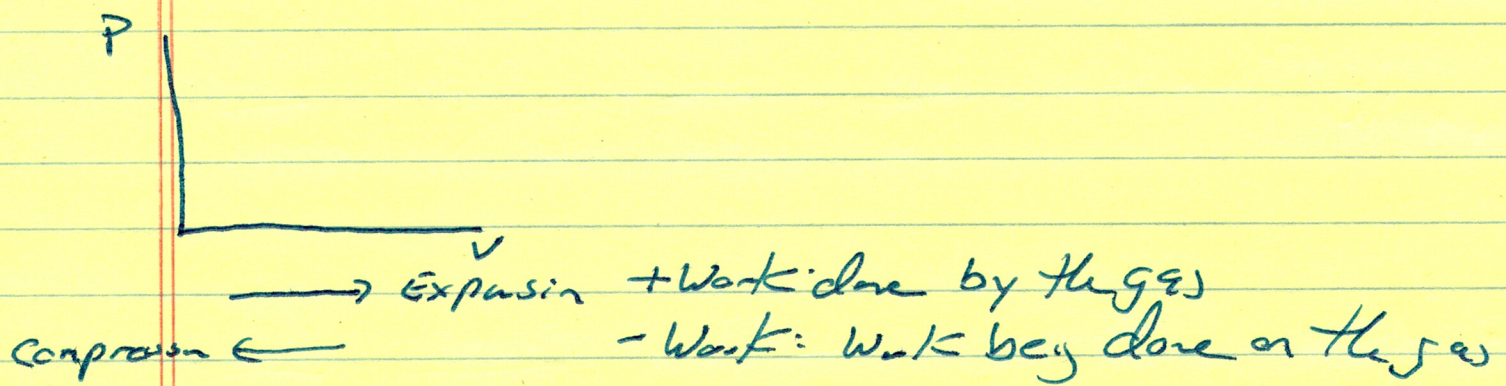 P
V
→ Expansin +Work: done by the gas
Compression ← - Work: Work being done on the gas